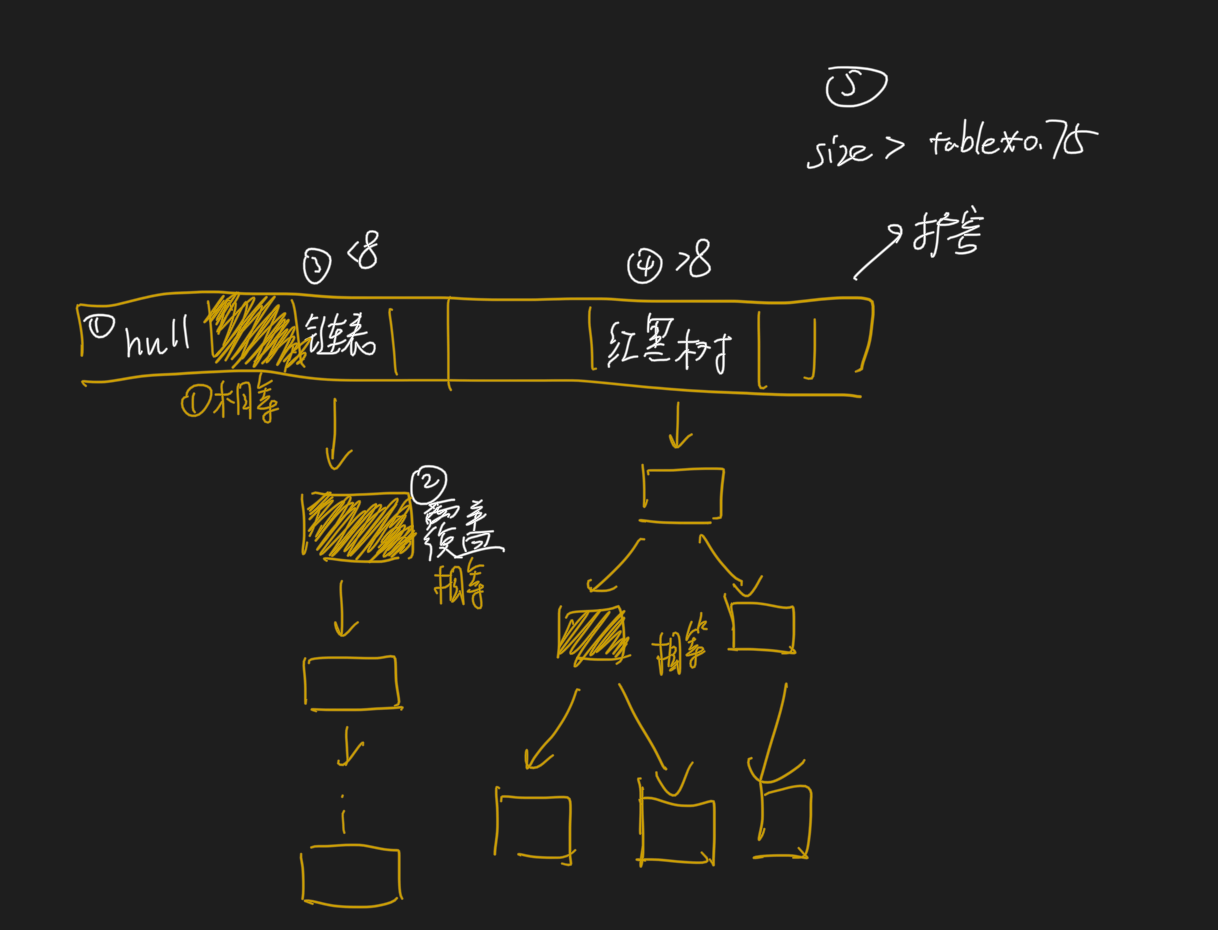 ⑤
size > table*0.75
扩容
③ <8
④ >8
① null
链表
红黑树
①相等
②
覆盖
相等
相等